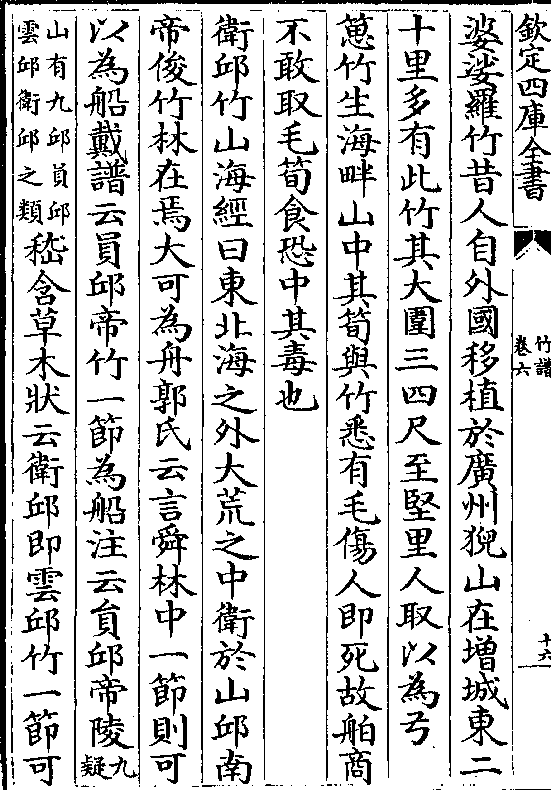 欽定四庫全書
竹譜
卷六
十六
婆娑羅竹昔人自外國移植於廣州猊山在增城東二
十里多有此竹其大圍三四尺至堅里人取以為弓
葸竹生海畔山中其筍與竹悉有毛傷人即死故舶商
不敢取毛筍食恐中其毒也
衛邱竹山海經曰東北海之外大荒之中衛於山邱南
帝俊竹林在焉大可為舟郭氏云言舜林中一節則可
以為船戴譜云員邱帝竹一節為船注云員邱帝陵九疑
山有九邱員邱雲邱衛邱之類嵇含草木狀云衛邱即雲邱竹一節可